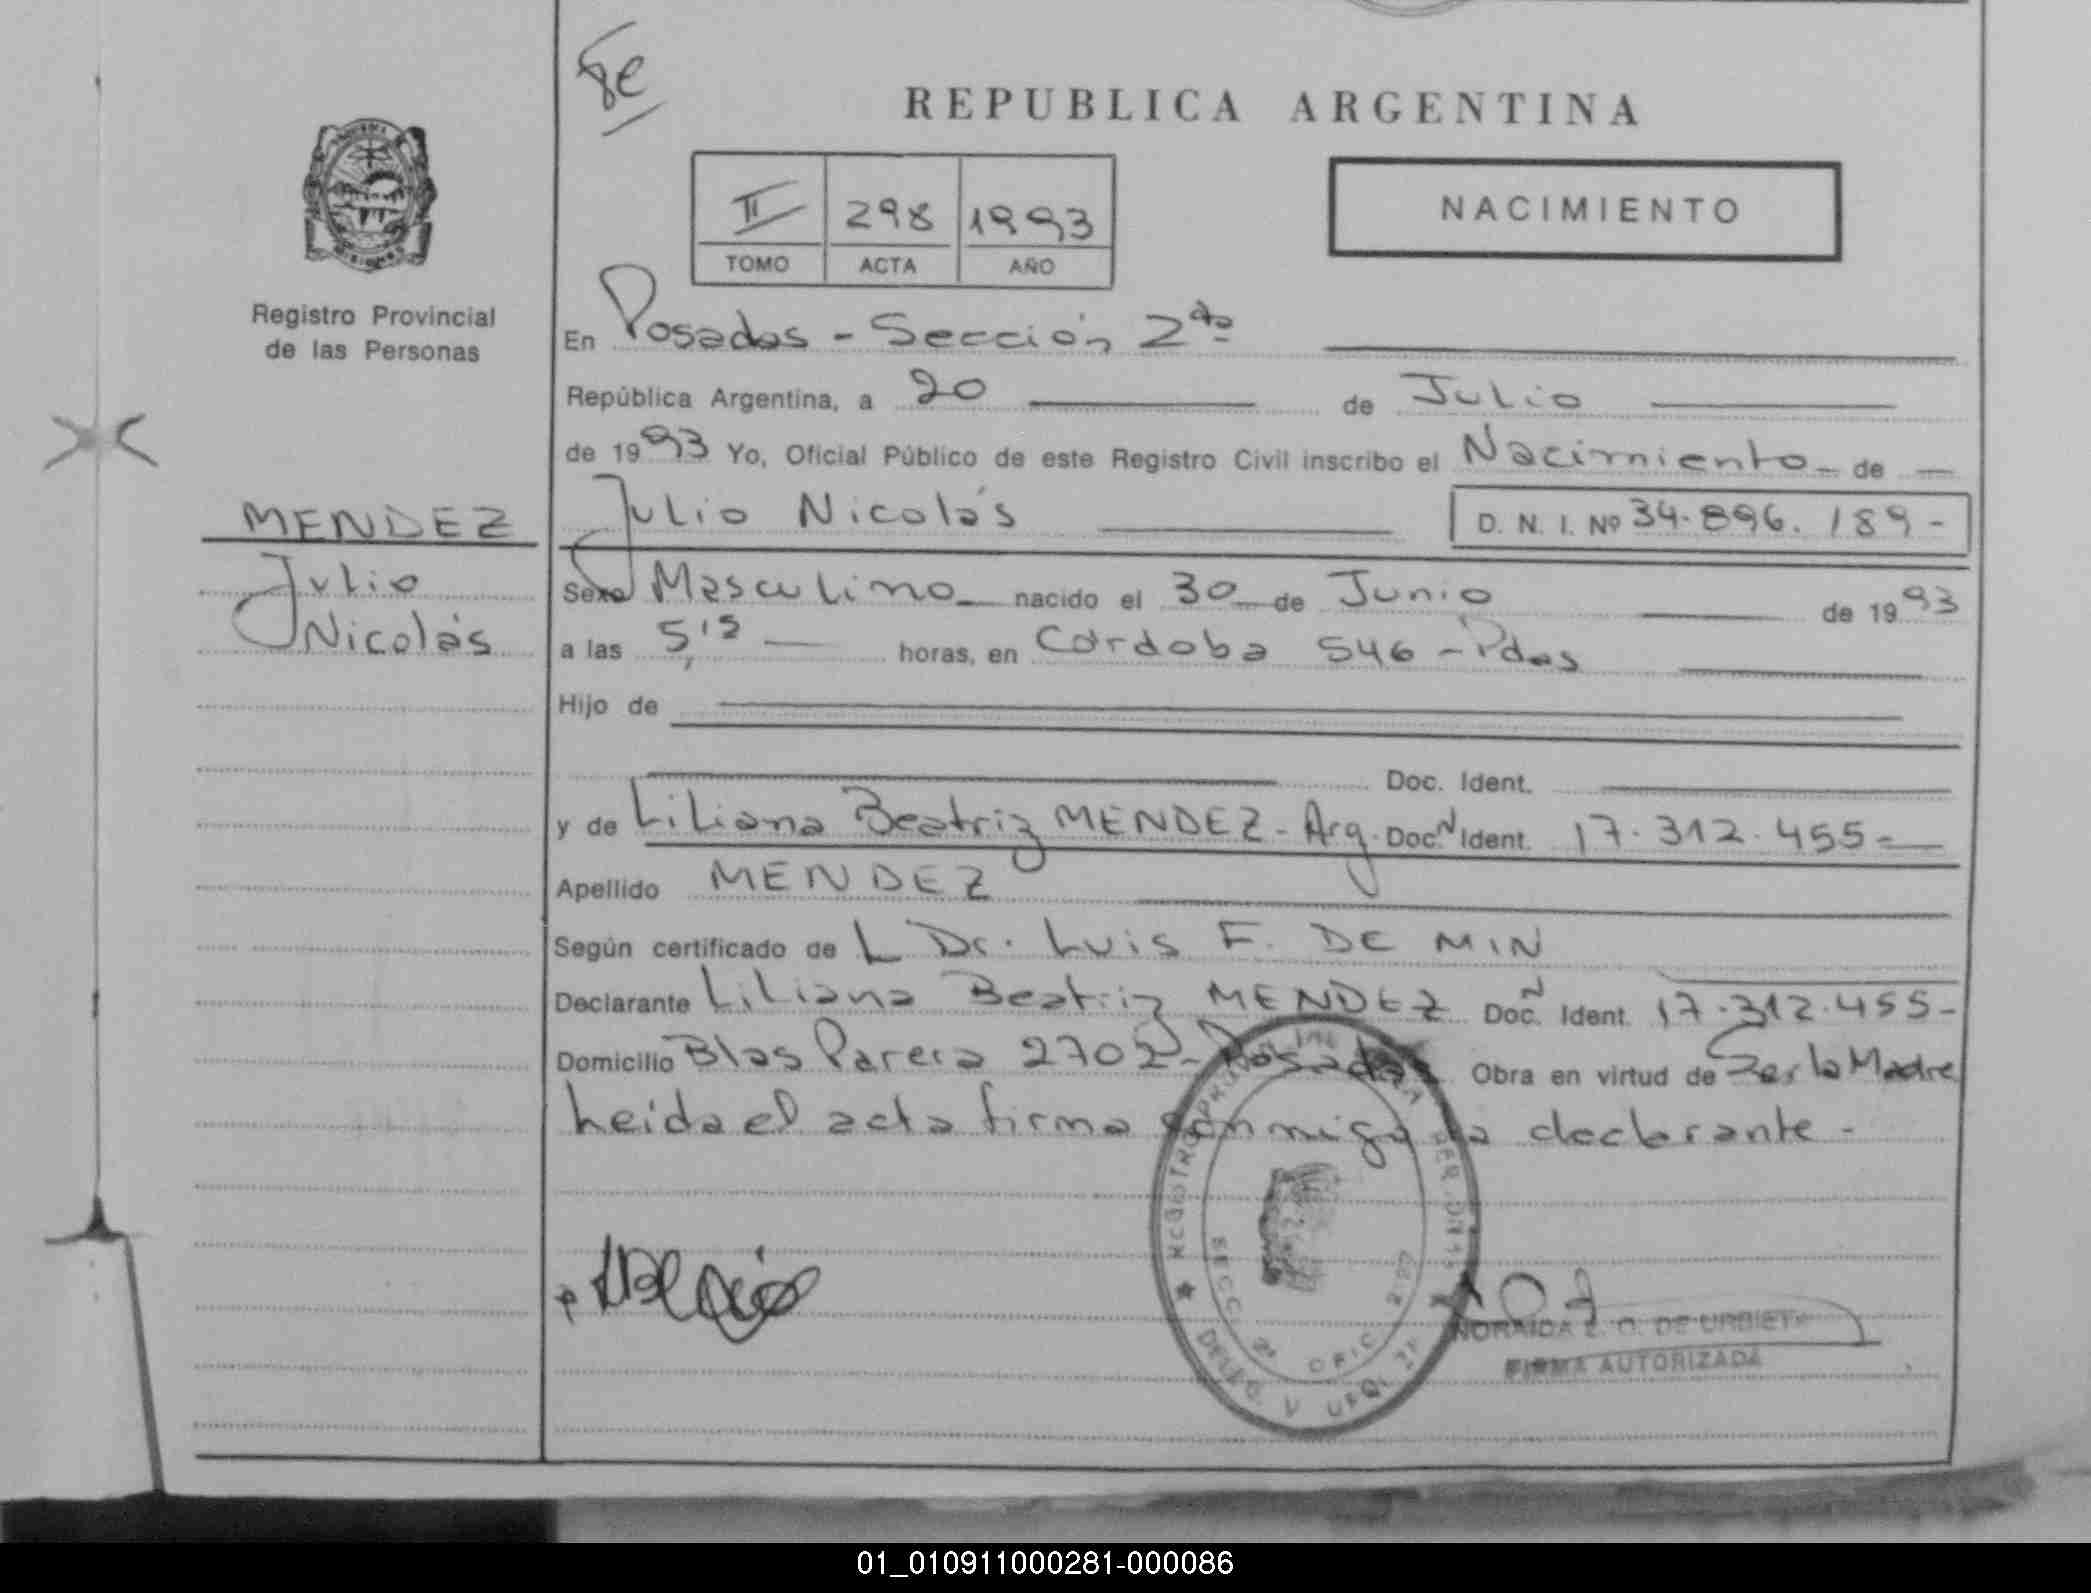 REPUBLICA ARGENTINA
II 298 1993
TOMO ACTA AÑO
NACIMIENTO
Registro Provincial
de las Personas
MENDEZ
Julio
Nicolás
En Posadas - Sección 2da
República Argentina, a 20 de Julio
de 1993 Yo, Oficial Público de este Registro Civil inscribo el Nacimiento de
Julio Nicolás D. N. I. Nº 34.896.189-
Sexo Masculino nacido el 30 de Junio de 1993
a las 5,15 horas, en Córdoba 546 - Pdas
Hijo de
Doc. Ident.
y de Liliana Beatriz MENDEZ - Arg. Doc. N Ident. 17.312.455-
Apellido MENDEZ
Según certificado de L Dr. Luis F. DE MIN
Declarante Liliana Beatriz MENDEZ Doc. N Ident. 17.312.455-
Domicilio Blas Parera 2702 - Posadas Obra en virtud de Ser la Madre
Leida el acta firma conmigo la declarante -
REGISTRO PROVINCIAL DE LAS PERSONAS
SECC. 2ª OFIC.
NORAIDA E. O. DE URBIETA
FIRMA AUTORIZADA
01_010911000281-000086